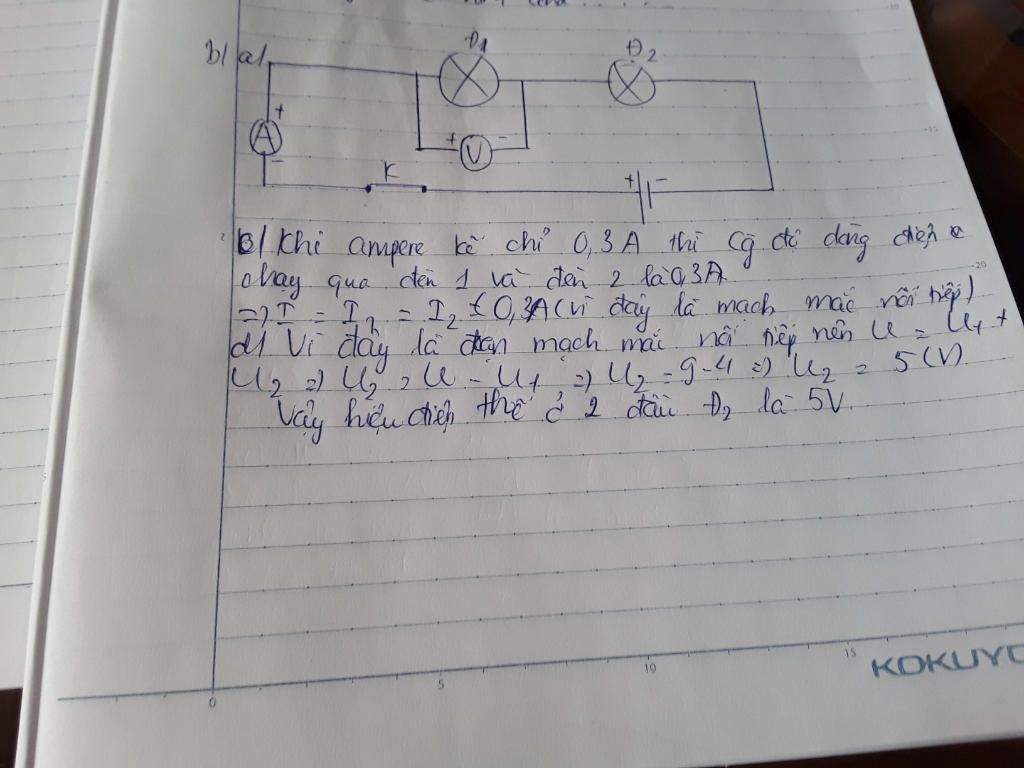 b/ a/
Đ1
Đ2
+
A
-
+ V -
K
+ -
c/ Khi ampere kế chỉ 0,3A thì cg độ dòng điện
chạy qua đèn 1 và đèn 2 là 0,3A
=> I = I1 = I2 = 0,3A (vì đây là mạch mắc nối tiếp)
d/ Vì đây là đoạn mạch mắc nối tiếp nên U = U1 +
U2 => U2 = U - U1 => U2 = 9-4 => U2 = 5 (V)
Vậy hiệu điện thế ở 2 đầu Đ2 là 5V.
15
20
0 5 10 15
KOKUYO